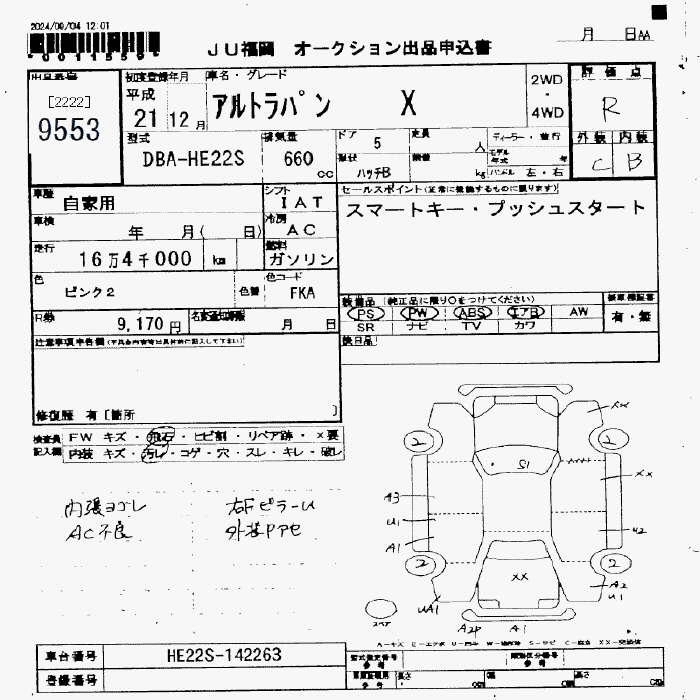 2024/09/04 12:01
*0011559*
JU福岡 オークション出品申込書
月 日AA
出品番号
[2222]
9553
初度登録年月
平成
21 12 月
車名・グレード
アルトラパン X
2WD
・
4WD
評価点
R
型式
DBA-HE22S
排気量
660 cc
ドア 5
形状 ハッチB
定員 人
積載 kg
ディーラー・並行
モデル年式 年
ハンドル 左・右
外装 内装
C B
車歴 自家用
シフト IAT
セールスポイント(正常に稼働するものに限ります)
スマートキー・プッシュスタート
車検 年 月( 日)
冷房 AC
走行 16万4千000 km
燃料 ガソリン
色 ピンク2
色替
色コード FKA
装備品 (純正品に限り○をつけてください)
PS PW ABS エアB AW
SR ナビ TV カワ
有・無
R券 9,170 円
名変通知期限 月 日
後日品
注意事項申告欄
修復歴 有 [箇所 ]
検査員記入欄
FW キズ・飛石・ヒビ割・リペア跡・×要
内装 キズ・汚レ・コゲ・穴・スレ・キレ・破レ
内張ヨゴレ 右Fピラーu
AC不良 外装Pアセ
XX
2 2
S1
A3 XX
U1
A1 U2
2 2
XX
A2
U1
UA1
スペア
A2P A1
車台番号 HE22S-142263
型式指定番号 参考
類別区分番号 参考
登録番号
長さ cm
幅 cm
高さ cm